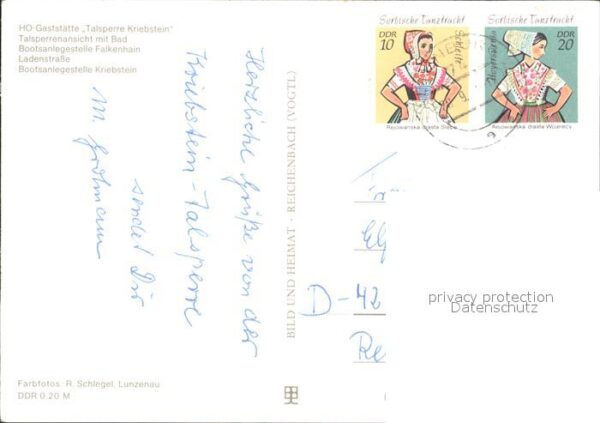 HO-Gaststätte „Talsperre Kriebstein"
Talsperrenansicht mit Bad
Bootsanlegestelle Falkenhain
Ladenstraße
Bootsanlegestelle Kriebstein
Herzliche Grüße von der
Kriebstein-Talsperre
sendet Dir
M.
Farbfotos: R. Schlegel, Lunzenau
DDR 0,20 M
BILD UND HEIMAT · REICHENBACH (VOGTL)
Sorbische Tanztracht
DDR
10
Schleife
Rejowanska drasta Slepo
Sorbische Tanztracht
DDR
20
Hoyerswerda
Rejowanska drasta Wojerecy
D-42
Re
privacy protection
Datenschutz